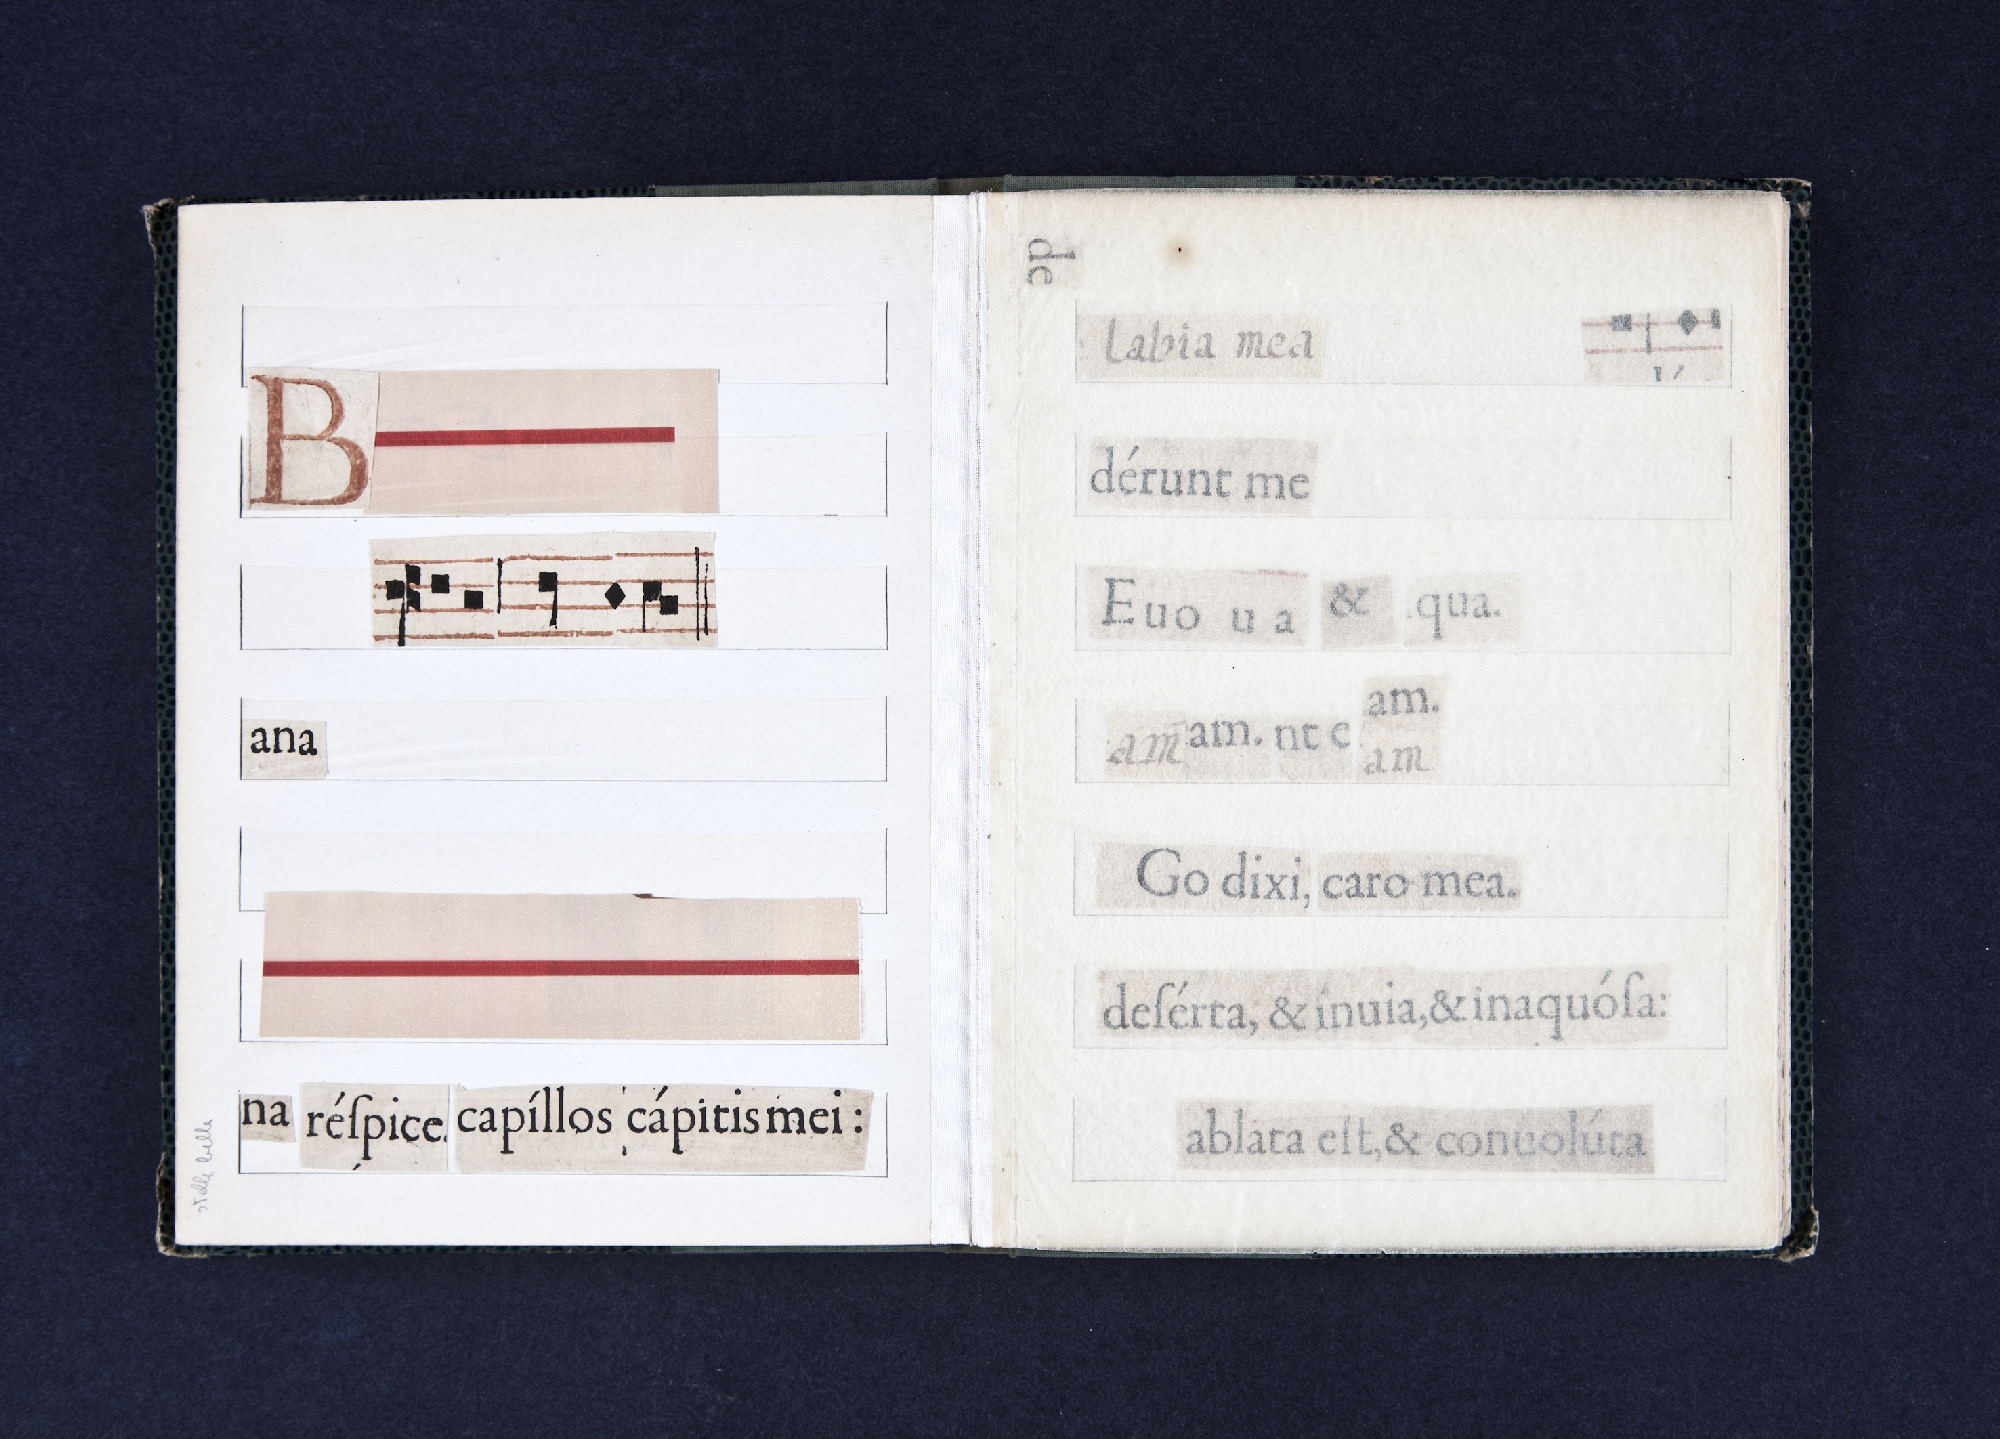 B
ana
na réſpice. capíllos cápitis mei :
de
labia mea
dérunt me
Euo u a & qua.
am.
am am. nt e
am
Go dixi, caro mea.
deſérta, & ínuia, & inaquóſa:
ablata eſt, & conuolúta